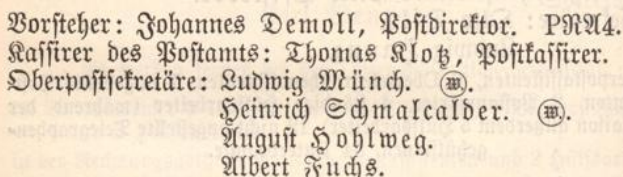 Vorsteher: Johannes Demoll, Postdirektor. PRA4.
Kassirer des Postamts: Thomas Klotz, Postkassirer.
Oberpostsekretäre: Ludwig Münch. Ⓦ.
Heinrich Schmalcalder. Ⓦ.
August Hohlweg.
Albert Fuchs.